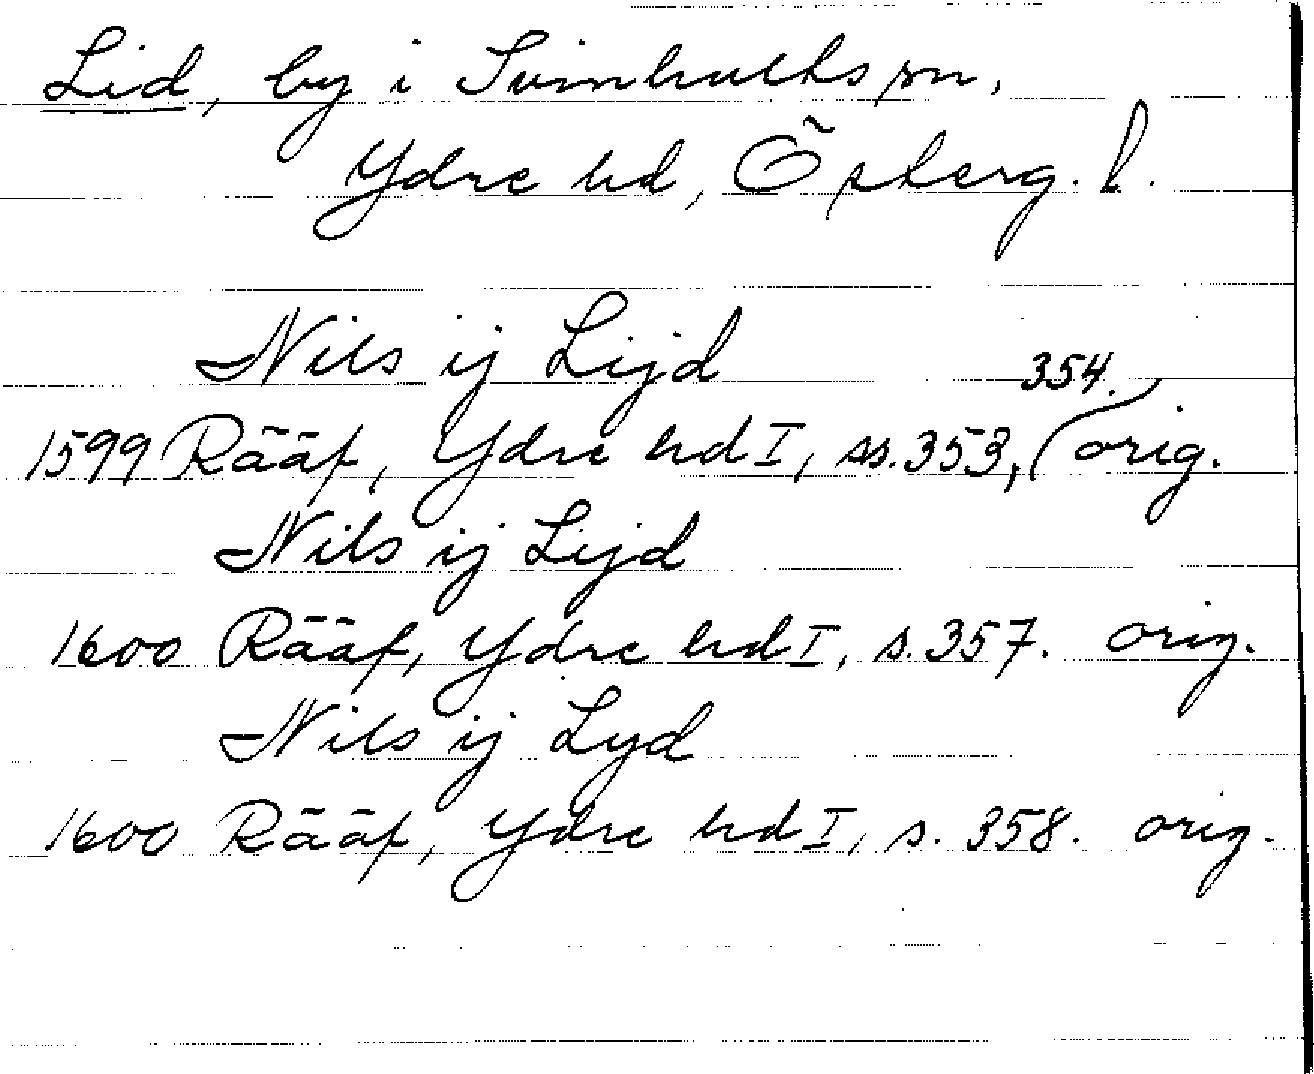 Lid, by i Svinhults sn,
Ydre hd, Österg. l.
Nils ij Lijd
354.
1599 Rääf, Ydre hd I, ss. 353, orig.
Nils ij Lijd
1600 Rääf, Ydre hd I, s. 357. orig.
Nils ij Lyd
1600 Rääf, Ydre hd I, s. 358. orig.